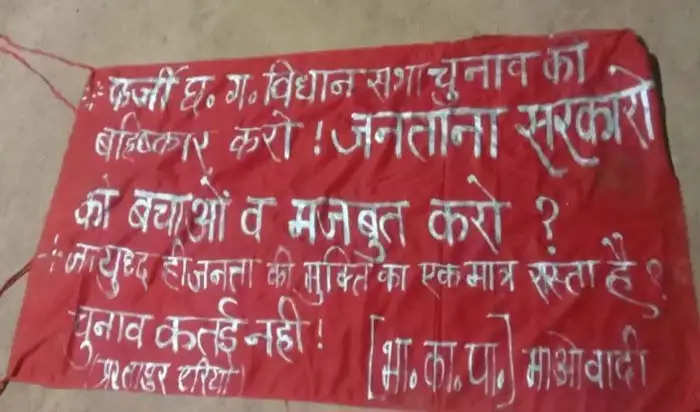 फर्जी छ. ग. विधान सभा चुनाव का
बहिष्कार करो ! जनताना सरकारो
को बचाओं व मजबुत करो ?
जनयुध्द ही जनता की मुक्ति का एक मात्र रास्ता है ?
चुनाव कतई नही !
एरिया)
[भा. का. पा.] माओवादी